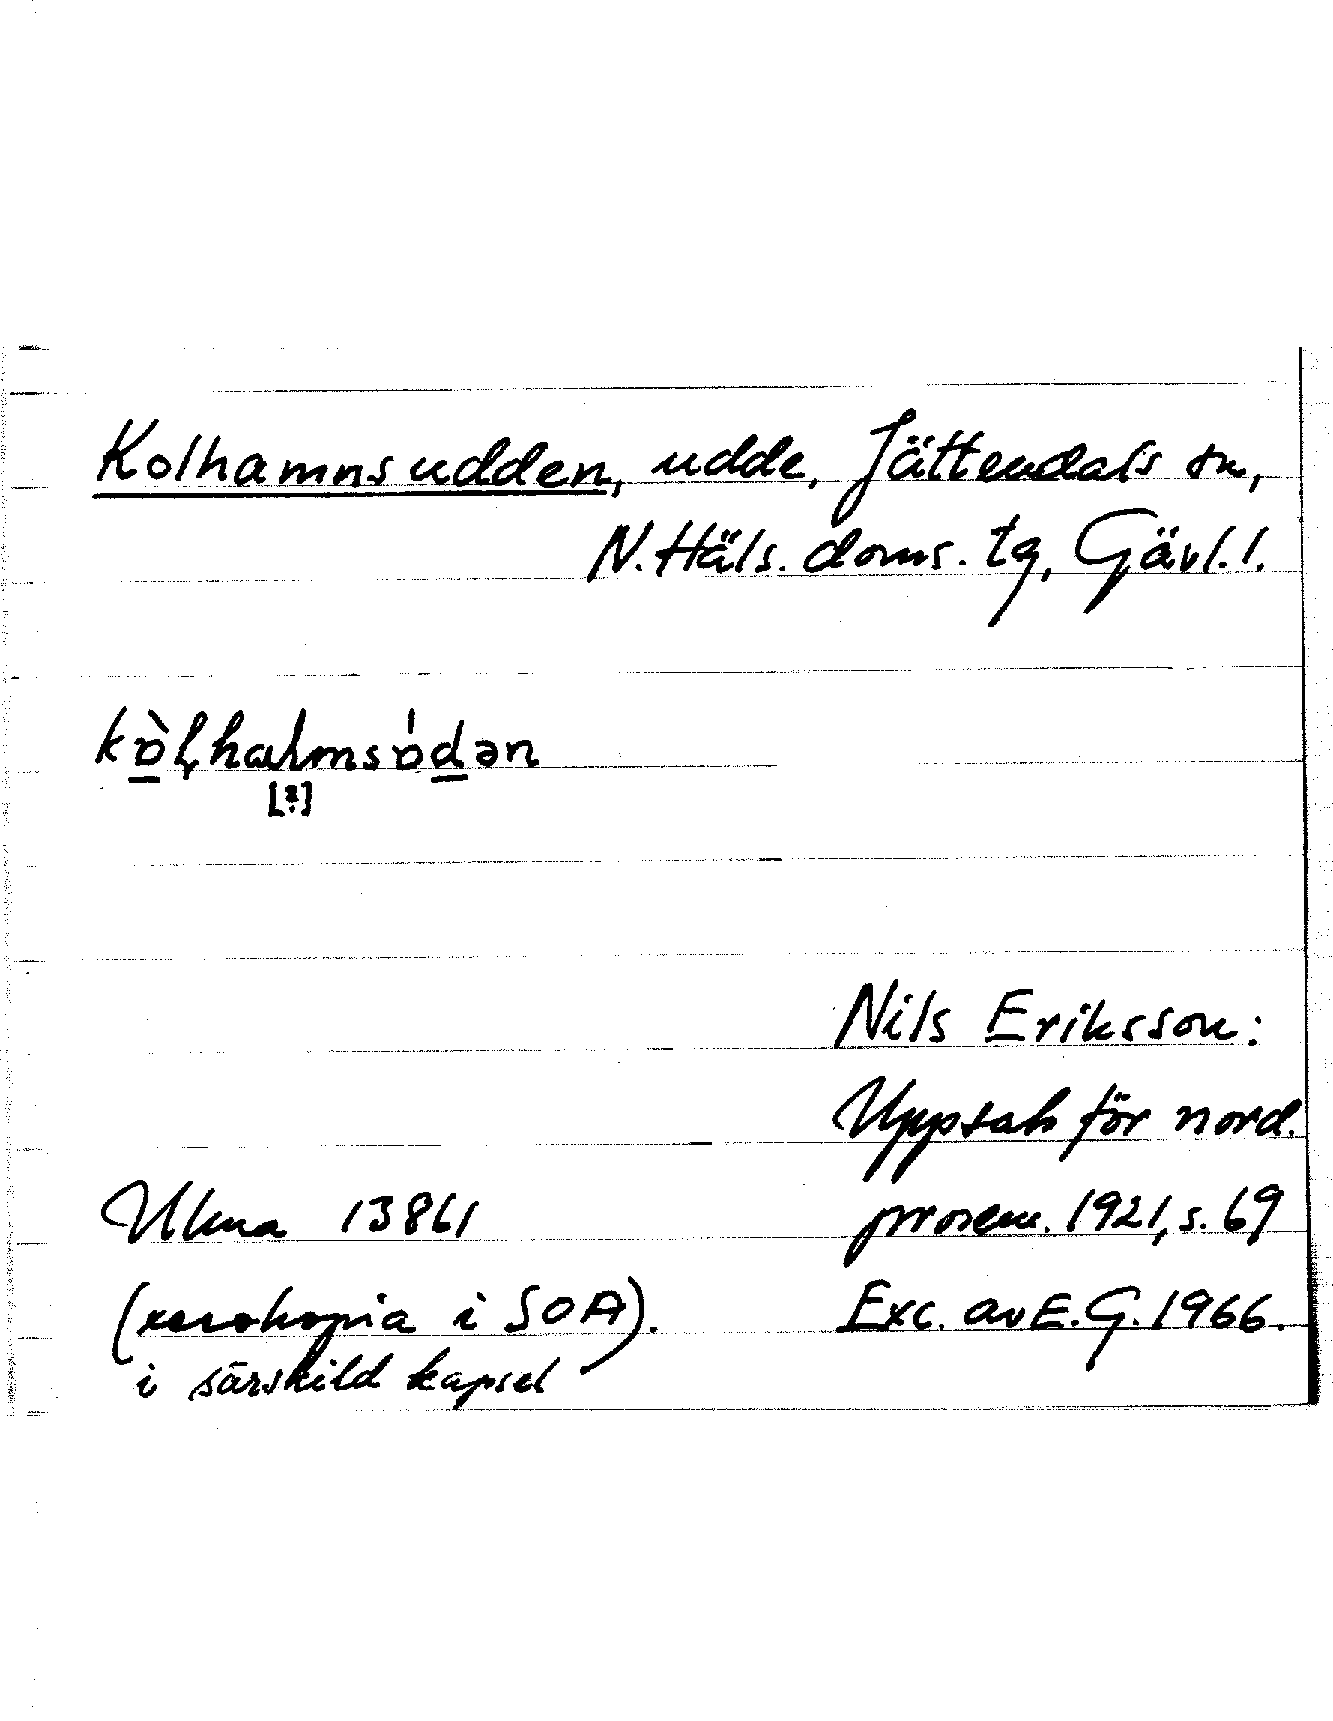 Kolhamnsudden, udde, Jättendals sn,
N. Häls. doms. tg, Gävl. l.
[?]
Nils Eriksson:
Uppsats för nord.
prosem. 1921, s. 69
Ulma 13861
(xerokopia i SOA).
i särskild kapsel
Exc. av E. G. 1966.